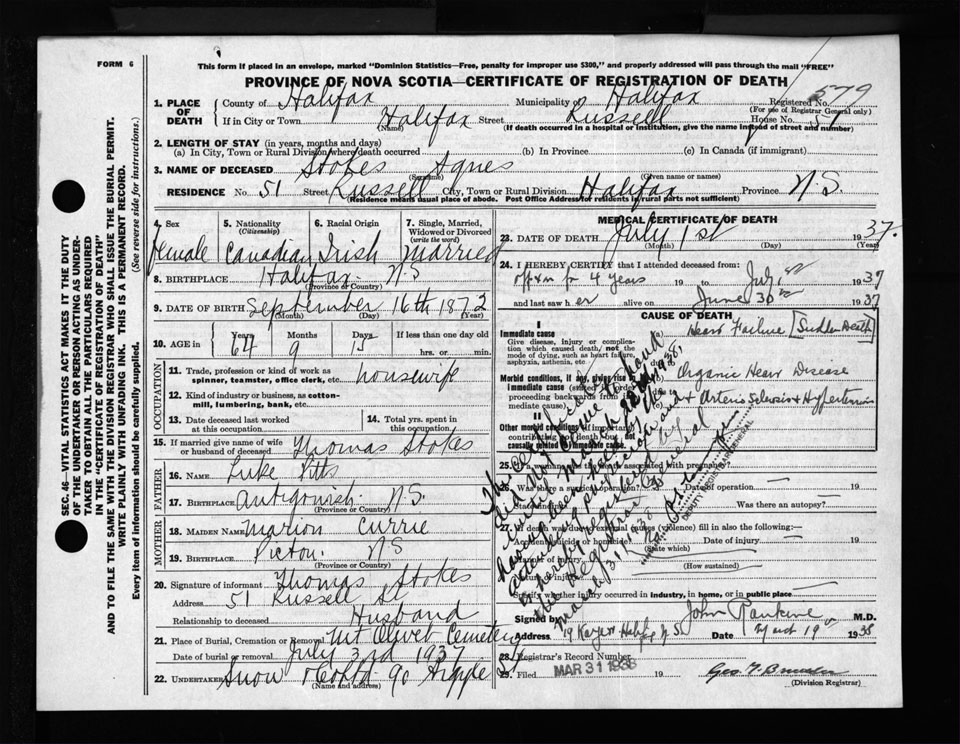 FORM 6
This form if placed in an envelope, marked "Dominion Statistics—Free, penalty for improper use $300," and properly addressed will pass through the mail "FREE"
PROVINCE OF NOVA SCOTIA—CERTIFICATE OF REGISTRATION OF DEATH
SEC. 46—VITAL STATISTICS ACT MAKES IT THE DUTY
OF THE UNDERTAKER OR PERSON ACTING AS UNDER-
TAKER TO OBTAIN ALL THE PARTICULARS REQUIRED
IN THE "CERTIFICATE OF REGISTRATION OF DEATH"
AND TO FILE THE SAME WITH THE DIVISION REGISTRAR WHO SHALL ISSUE THE BURIAL PERMIT.
WRITE PLAINLY WITH UNFADING INK. THIS IS A PERMANENT RECORD.
Every item of information should be carefully supplied. (See reverse side for instructions.)
1. PLACE OF DEATH County of Halifax Municipality of Halifax Registered No. 579
(For use of Registrar General only)
If in City or Town Halifax Street Russell House No. 51
(Name) (If death occurred in a hospital or institution, give the name instead of street and number)
2. LENGTH OF STAY (in years, months and days)
(a) In City, Town or Rural Division where death occurred (b) In Province (c) In Canada (if immigrant)
3. NAME OF DECEASED Stokes Agnes
(Surname) (Given name or names)
RESIDENCE No. 51 Street Russell City, Town or Rural Division Halifax Province N.S.
(Residence means usual place of abode. Post Office Address for residents in rural parts not sufficient)
4. Sex Female
5. Nationality (Citizenship) Canadian
6. Racial Origin Irish
7. Single, Married, Widowed or Divorced (write the word) Married
8. BIRTHPLACE Halifax N.S
(Province or Country)
9. DATE OF BIRTH September 16th 1872
(Month) (Day) (Year)
10. AGE in Years 64 Months 9 Days 15 If less than one day old hrs. or min.
OCCUPATION
11. Trade, profession or kind of work as spinner, teamster, office clerk, etc. housewife
12. Kind of industry or business, as cotton-mill, lumbering, bank, etc.
13. Date deceased last worked at this occupation
14. Total yrs. spent in this occupation
15. If married give name of wife or husband of deceased Thomas Stokes
FATHER
16. NAME Luke Pitts
17. BIRTHPLACE Antigonish N.S.
(Province or Country)
MOTHER
18. MAIDEN NAME Marion Currie
19. BIRTHPLACE Pictou N S
(Province or Country)
20. Signature of informant Thomas Stokes
Address 51 Russell St
Relationship to deceased Husband
21. Place of Burial, Cremation or Removal Mt Olivet Cemetery
Date of burial or removal July 3rd 1937
22. UNDERTAKER Snow
(Name and address)
MEDICAL CERTIFICATE OF DEATH
23. DATE OF DEATH July 1st 1937.
(Month) (Day) (Year)
24. I HEREBY CERTIFY that I attended deceased from:
off & on for 4 years 19 to July 1937
and last saw her alive on June 30 1937
CAUSE OF DEATH
I
Immediate cause
Give disease, injury or complication which caused death, not the mode of dying, such as heart failure, asphyxia, asthenia, etc.
(a) Heart Failure [Sudden Death]
Morbid conditions, if any, giving rise to immediate cause
proceeding backwards from immediate cause)
Organic Heart Disease
& Arterio Sclerosis & Hypertension
II
Other morbid conditions (if important) contributing to death but not causally related to immediate cause.
Date of operation —
Was there an autopsy? —
fill in also the following:—
Date of injury —
(State which)
(How sustained)
Specify whether injury occurred in industry, in home, or in public place —
March 31 1938
DEPUTY REGISTRAR GENERAL
Signed by John Rankine M.D.
Address Halifax N S Date 1938
28. Registrar's Record Number
29. Filed MAR 31 1938 19
(Division Registrar)